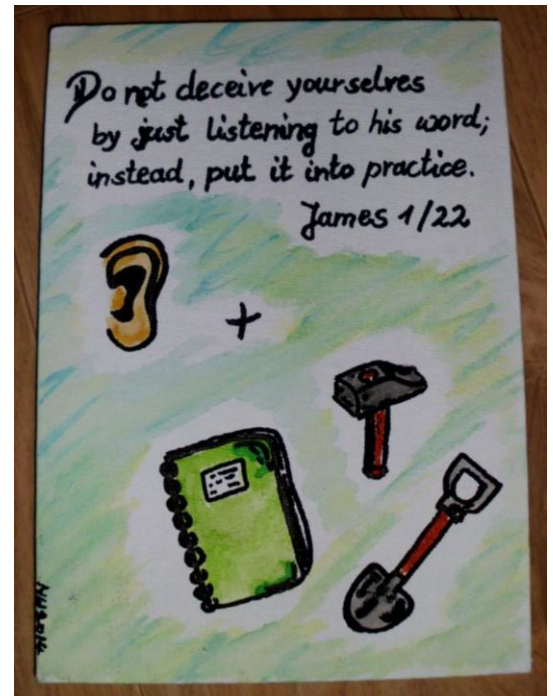 Do not deceive yourselves
by just listening to his word;
instead, put it into practice.
James 1/22
+